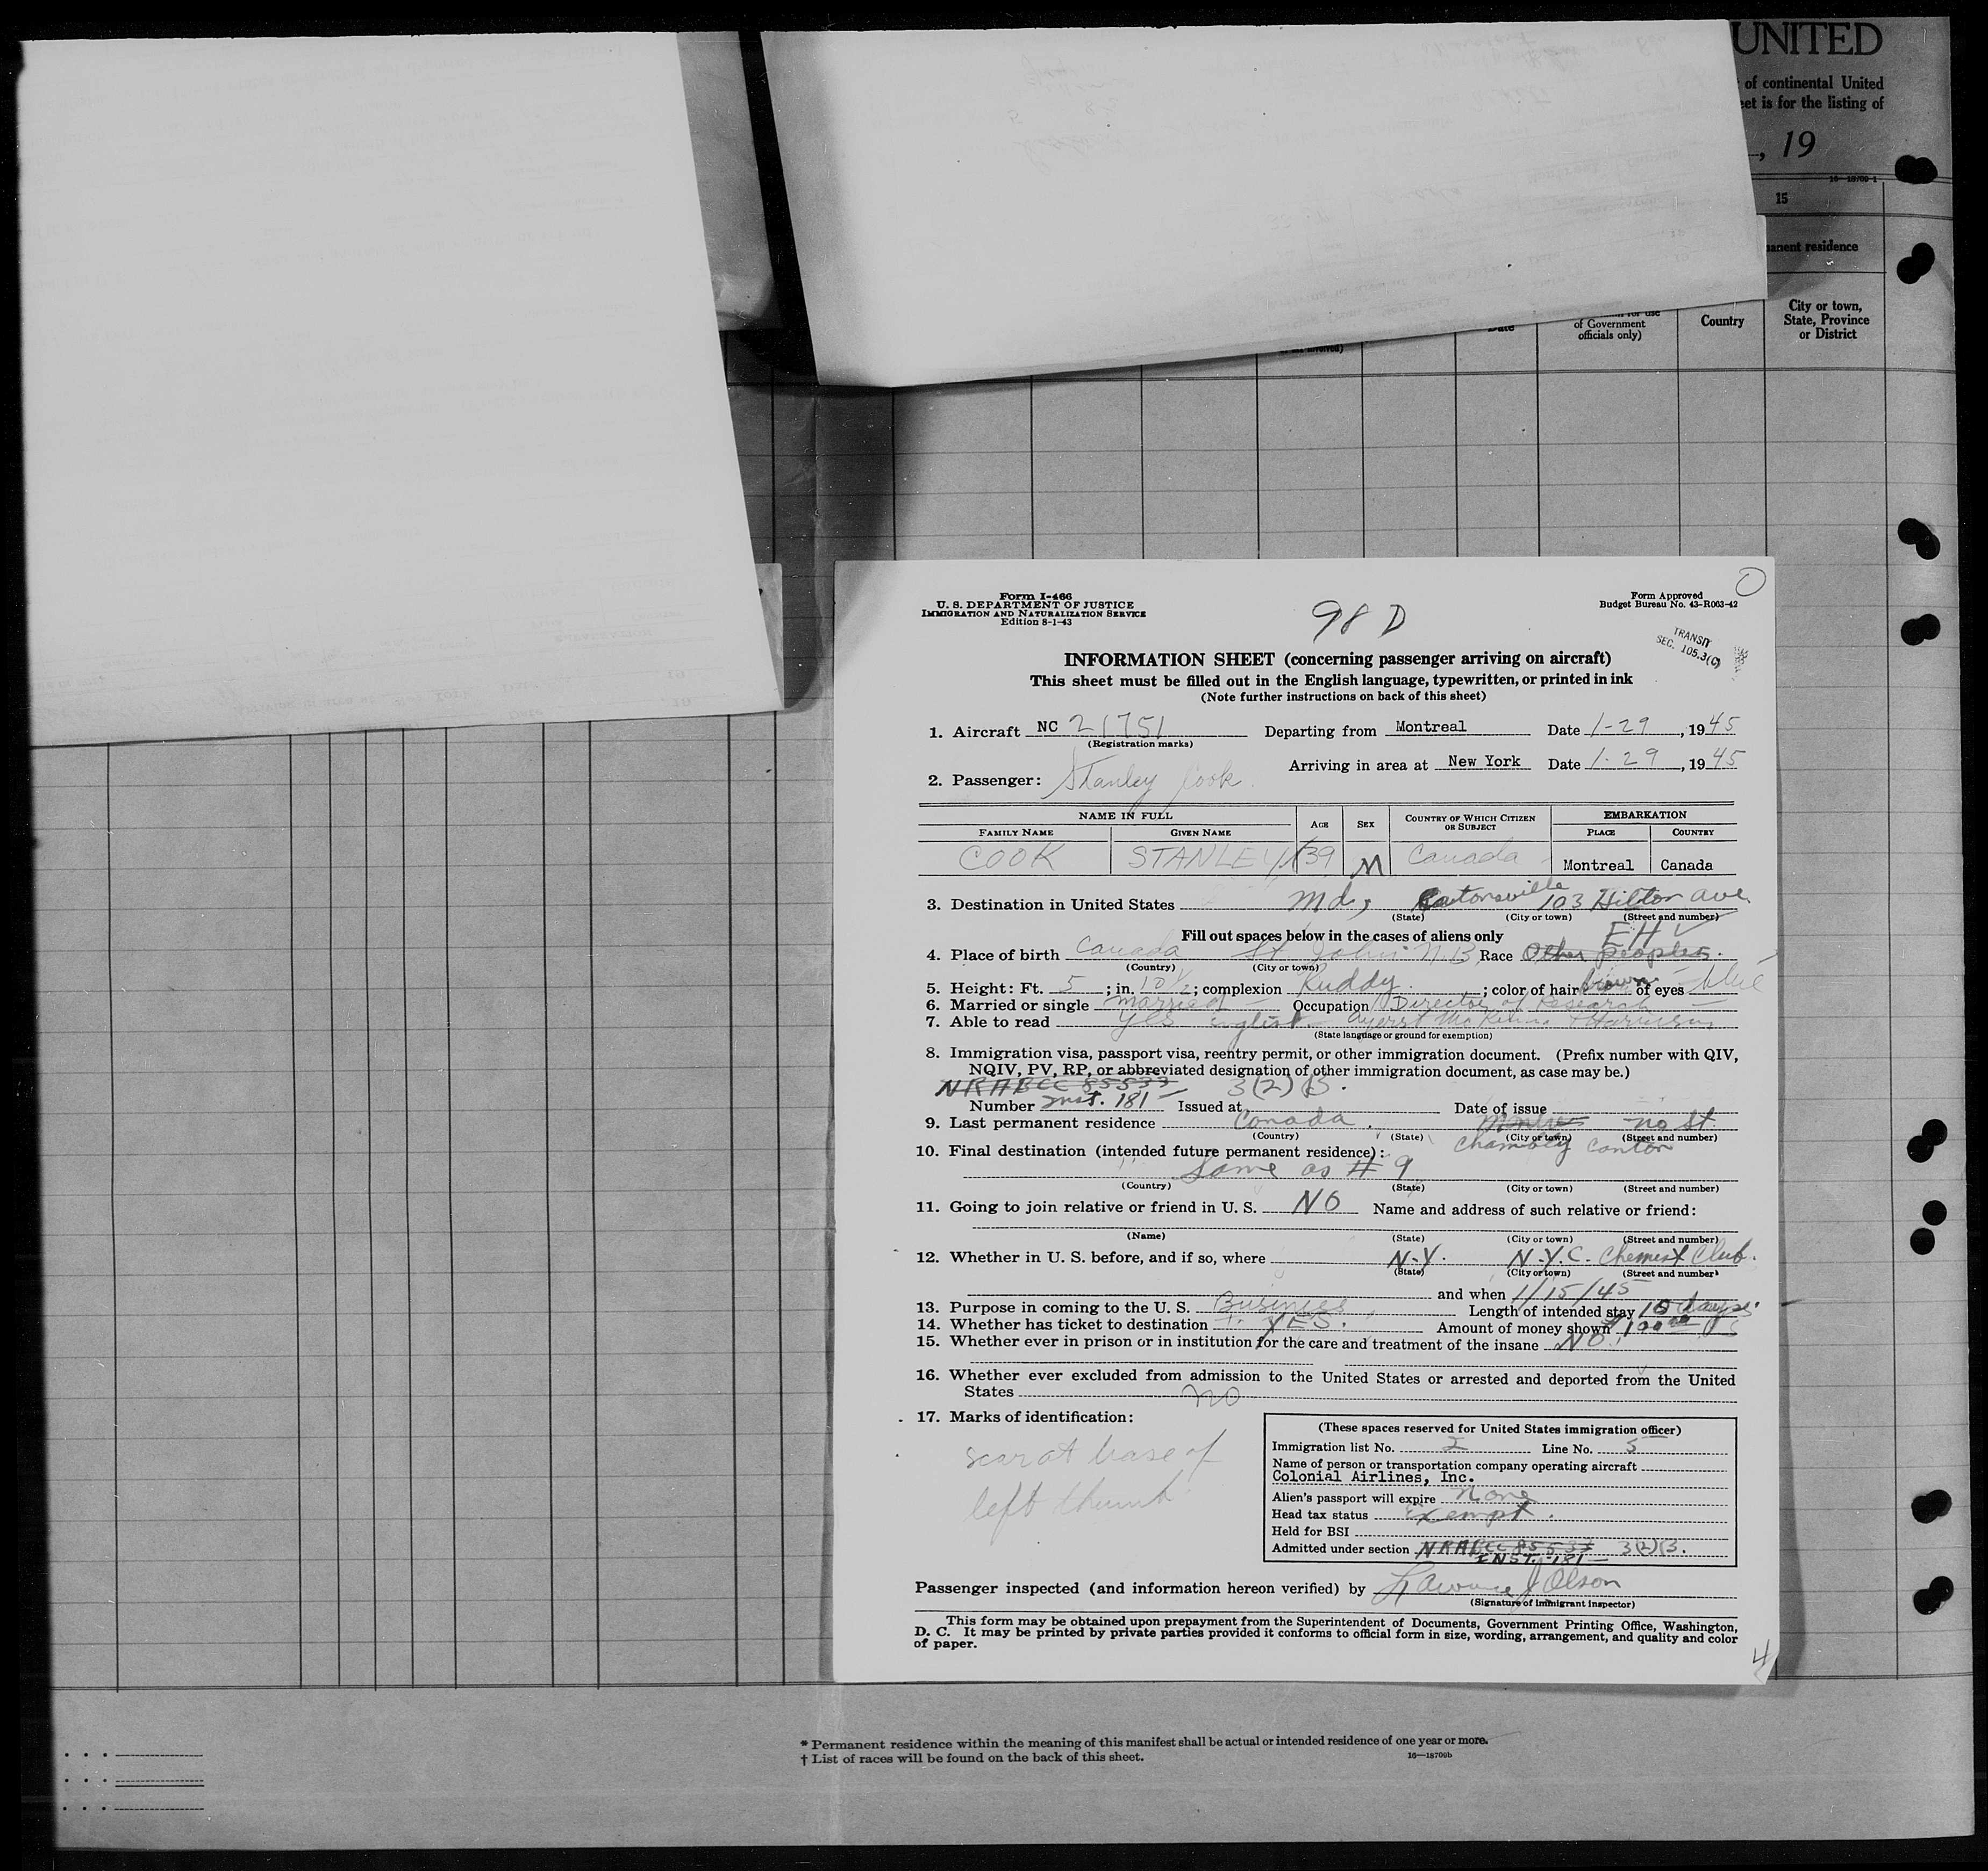 UNITED
of continental United
eet is for the listing of
, 19
15
anent residence
of Government
officials only)
Country
City or town,
State, Province
or District
Form I-466
U. S. DEPARTMENT OF JUSTICE
IMMIGRATION AND NATURALIZATION SERVICE
Edition 8-1-43
98 D
Form Approved
Budget Bureau No. 43-R063-42
TRANSIT
SEC. 105.3(C)
INFORMATION SHEET (concerning passenger arriving on aircraft)
This sheet must be filled out in the English language, typewritten, or printed in ink
(Note further instructions on back of this sheet)
1. Aircraft NC 21751 Departing from Montreal Date 1-29, 1945
(Registration marks)
Arriving in area at New York Date 1-29, 1945
2. Passenger: Stanley Cook
NAME IN FULL AGE SEX COUNTRY OF WHICH CITIZEN OR SUBJECT EMBARKATION
FAMILY NAME GIVEN NAME PLACE COUNTRY
COOK STANLEY 39 M Canada Montreal Canada
3. Destination in United States Md, Catonsville 103 Hilton Ave
(State) (City or town) (Street and number)
Fill out spaces below in the cases of aliens only EH
4. Place of birth Canada St. John N.B. Race Other peoples.
(Country) (City or town)
5. Height: Ft. 5 ; in. 10 1/2 ; complexion Ruddy ; color of hair brown of eyes blue
6. Married or single married Occupation Director of Research
7. Able to read Yes English Ayerst McKenna & Harrison
(State language or ground for exemption)
8. Immigration visa, passport visa, reentry permit, or other immigration document. (Prefix number with QIV,
NQIV, PV, RP, or abbreviated designation of other immigration document, as case may be.)
NRABCC 85537 3(2) B.
Number Inst. 181 Issued at Date of issue
9. Last permanent residence Canada no St
(Country) (State) (City or town) (Street and number)
Chambly Canton
10. Final destination (intended future permanent residence):
Same as # 9
(Country) (State) (City or town) (Street and number)
11. Going to join relative or friend in U. S. NO Name and address of such relative or friend:
(Name) (State) (City or town) (Street and number)
12. Whether in U. S. before, and if so, where N.Y. N.Y.C. Chemist Club.
(State) (City or town) (Street and number)
and when 1/15/45
13. Purpose in coming to the U. S. Business Length of intended stay 10 days.
14. Whether has ticket to destination YES. Amount of money shown
15. Whether ever in prison or in institution for the care and treatment of the insane NO
16. Whether ever excluded from admission to the United States or arrested and deported from the United
States no
17. Marks of identification:
scar at base of
left thumb
(These spaces reserved for United States immigration officer)
Immigration list No. 2 Line No. 5
Name of person or transportation company operating aircraft
Colonial Airlines, Inc.
Alien's passport will expire none
Head tax status Exempt.
Held for BSI
Admitted under section NRABCC 85537 3(2)B.
INST. 181
Passenger inspected (and information hereon verified) by Lawrence J Olson
(Signature of immigrant inspector)
This form may be obtained upon prepayment from the Superintendent of Documents, Government Printing Office, Washington,
D. C. It may be printed by private parties provided it conforms to official form in size, wording, arrangement, and quality and color
of paper.
4
* Permanent residence within the meaning of this manifest shall be actual or intended residence of one year or more.
† List of races will be found on the back of this sheet. 16—18700b